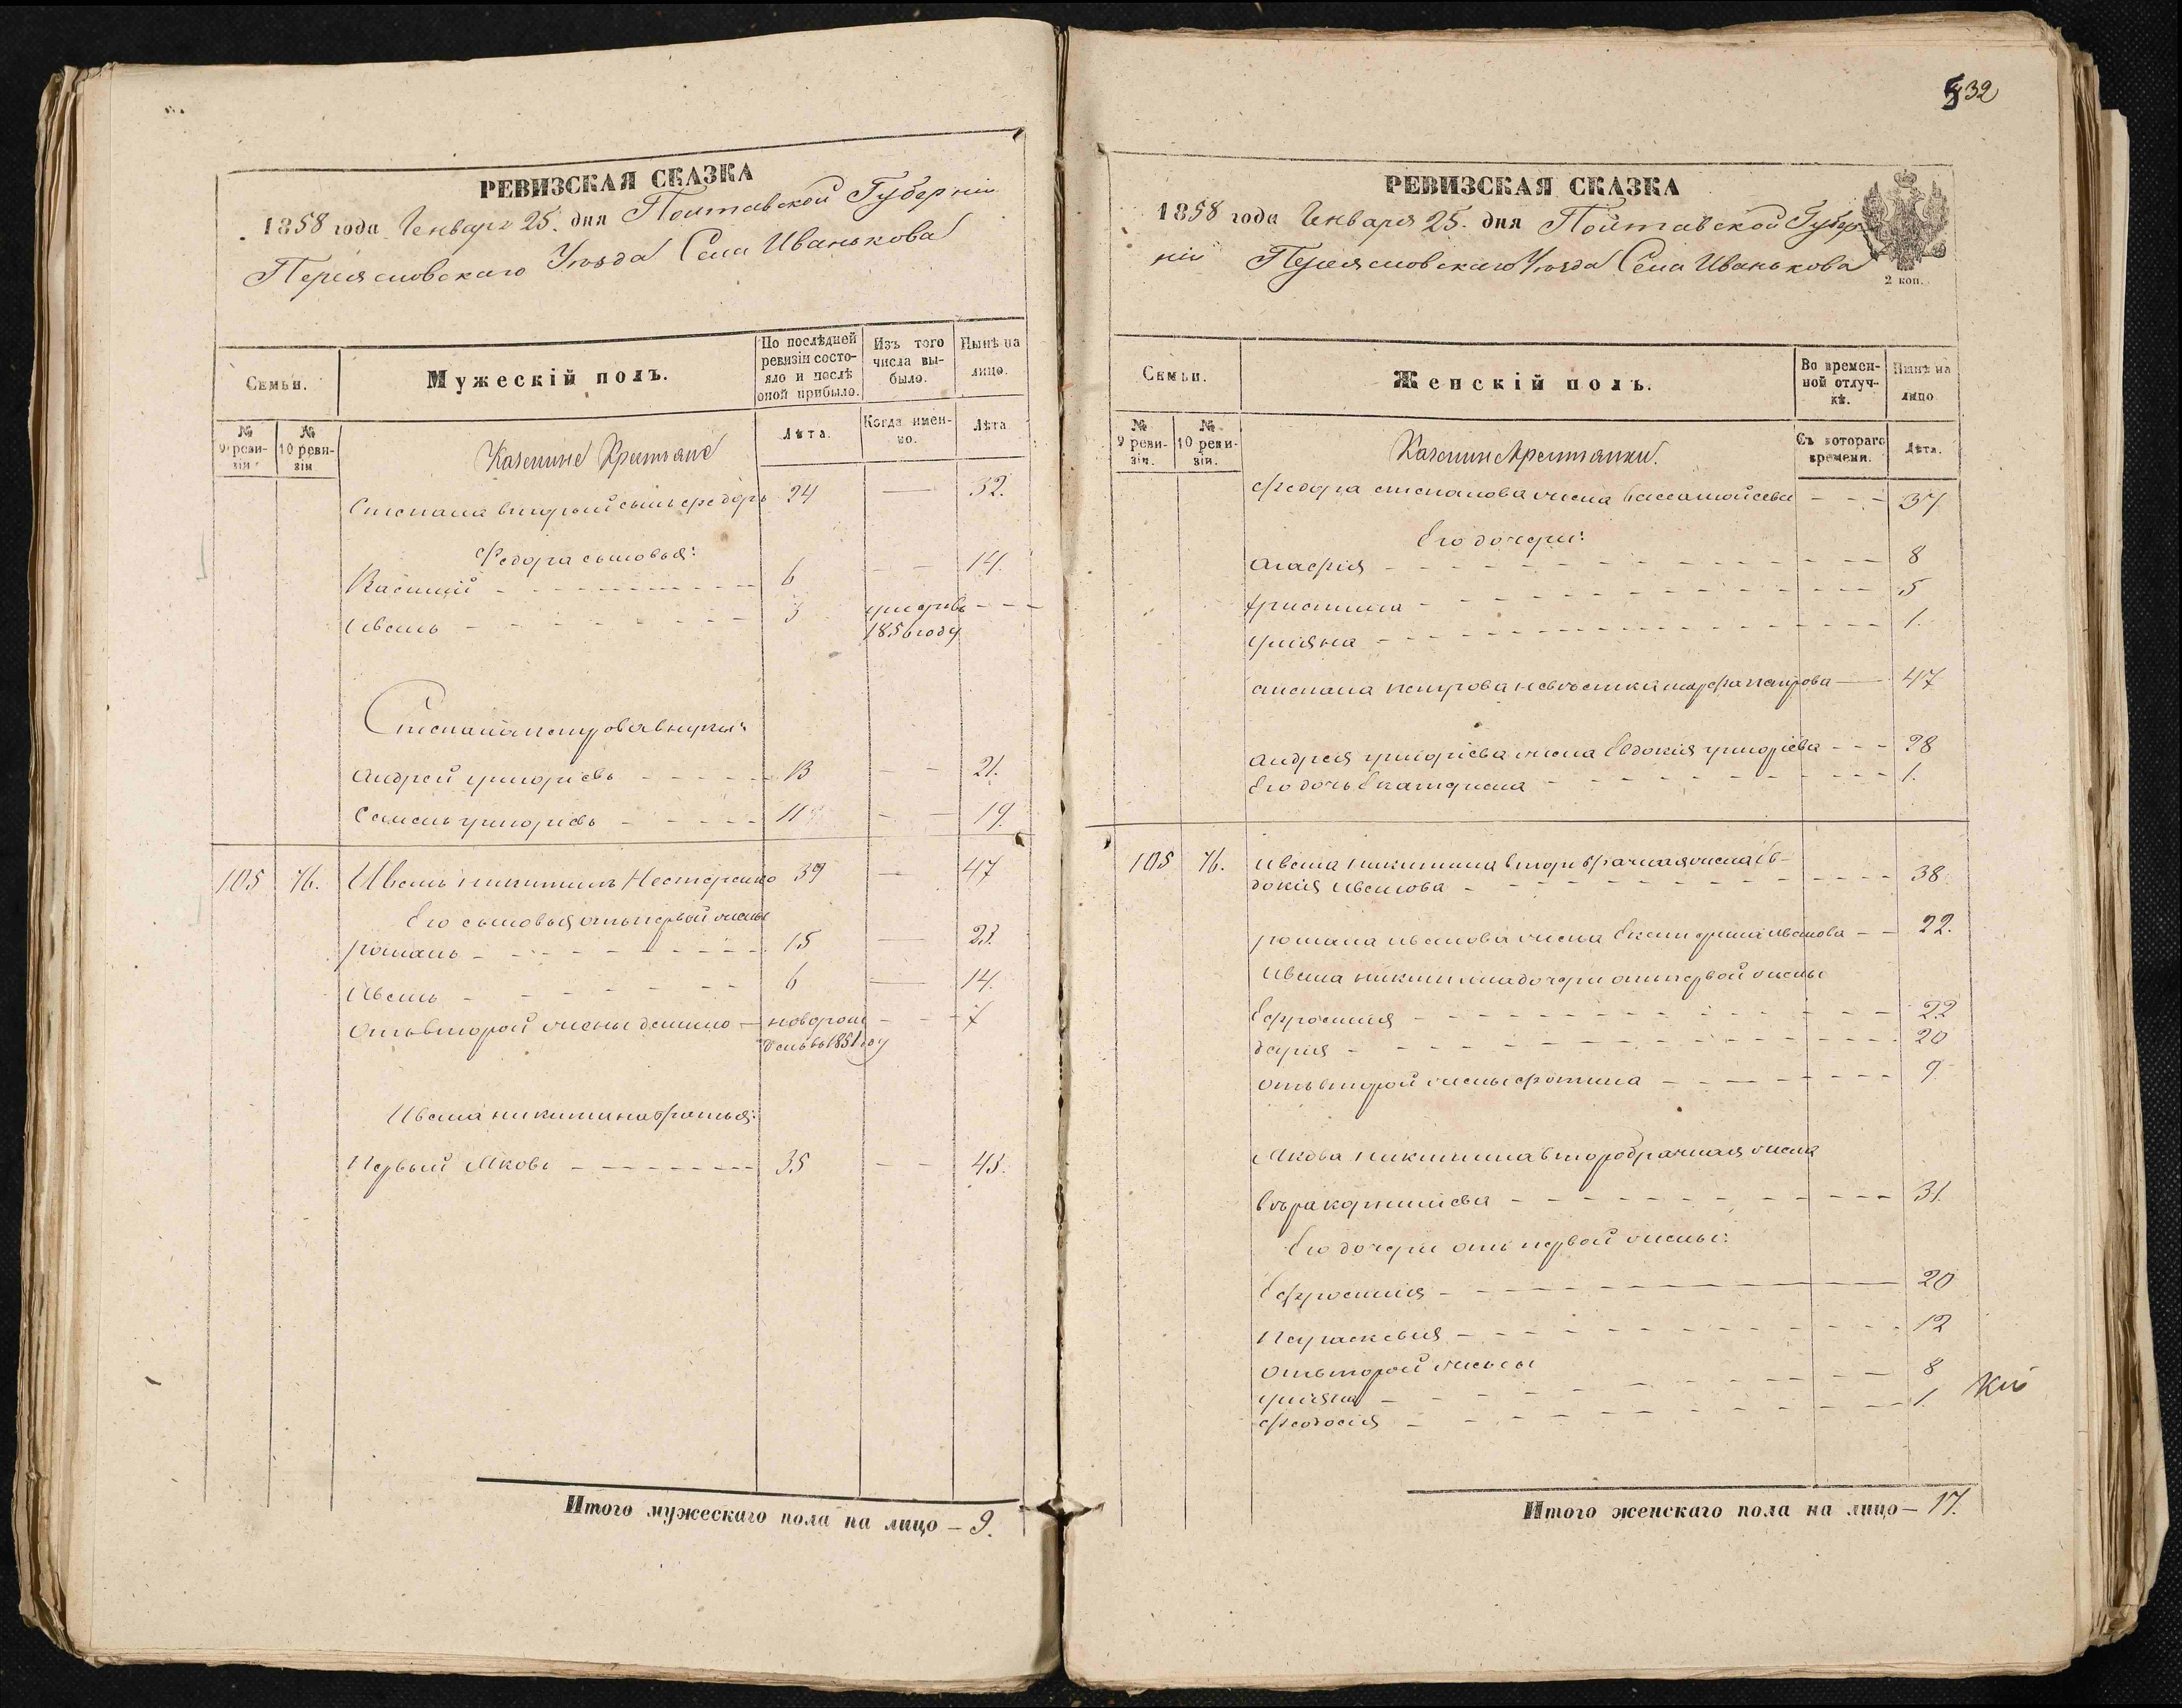 РЕВИЗСКАЯ СКАЗКА
1858 года Генваря 25. дня Полтавской Губерніи
Переясловскаго Уѣзда Села Иванькова
Семьи.
Мужескій полъ.
По послѣдней ревизіи состояло и послѣ оной прибыло.
Изъ того числа выбыло.
Нынѣ на лицо.
№ 9 ревизіи
№ 10 ревизіи
Казенние Крестьяне
Лѣта.
Когда именно.
Лѣта
Степана вторый сынъ Федоръ 24 — 32.
Федора сыновья:
Василій 6 — — 14.
Иванъ 3 умеръ въ
1856 году
Степана петрова внуки:
Андрей григоріевъ 13 — — 21.
Семенъ григоріевъ 11 — — 19.
105 76. Иванъ никитинъ Нестеренко 39 — 47
Его сыновья отъ первой жены
романъ 15 — 23.
Иванъ 6 — 14.
Отъ второй жены данило — новорож — — 7
денъ въ 1851 году
Ивана никитина братья:
Первый Яковъ 35 — — 43.
Итого мужескаго пола на лицо — 9.
532
РЕВИЗСКАЯ СКАЗКА
1858 года Генваря 25. дня Полтавской Губер
ніи Переясловскаго Уѣзда Села Иванькова
2 коп.
Семьи.
Женскій полъ.
Во временной отлучкѣ.
Нынѣ на лицо
№ 9 ревизіи.
№ 10 ревизіи.
Казенние Крестьянки.
Съ котораго времени.
Лѣта.
Федора степанова жена васса мойсева — — — 37
Его дочери:
Агафія 8
христина 5
уліяна 1.
степана петрова невѣстка марфа петрова — 47
андрея григоріева жена Евдокія григоріева — — — 28
Его дочь Екатерина 1.
105 76. Ивана никитина второбрачная жена Ев-
докія Иванова 38.
романа иванова жена Екатерина иванова — — 22.
Ивана никитина дочери отъ первой жены
Ефросинія 22
дарія 20
отъ второй жены фотина 9
Якова никитина второбрачная жена
вѣра корниліева 31.
Его дочери отъ первой жены:
Ефросинія 20
Параскевія 12
отъ второй жены
уліяна 8
феодосія 1.
Итого женскаго пола на лицо — 17.